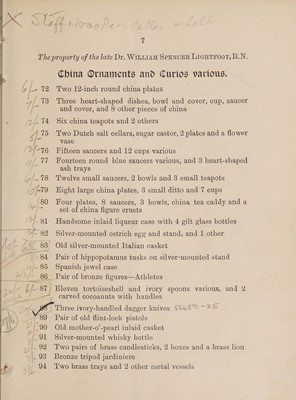 7
The property of the late Dr. William Spencer Lightfoot, R.N.
China Ornaments and Curios various.
72 Two 12-inch round china plates
73 Three heart-shaped dishes, bowl and cover, cup, saucer
and cover, and 8 other pieces of china
74 Six china teapots and 2 others
75 Two Dutch salt cellars, sugar castor, 2 plates and a flower
vase
76 Fifteen saucers and 12 cups various
77 Fourteen round blue saucers various, and 3 heart-shaped
ash trays
78 Twelve small saucers, 2 bowls and 3 small teapots
79 Eight large china plates, 3 small ditto and 7 cups
80 Four plates, 8 saucers, 3 bowls, china tea caddy and a
set of china figure cruets
81 Handsome inlaid liqueur case with 4 gilt glass bottles
82 Silver-mounted ostrich egg and stand, and 1 other
83 Old silver-mounted Italian casket
84 Pair of hippopotamus tusks on silver-mounted stand
85 Spanish jewel case
86 Pair of bronze figures—Athletes
87 Eleven tortoiseshell and ivory spoons various, and 2
carved cocoanuts with handles
88 Three ivory-handled dagger knives
89 Pair of old flint-lock pistols
90 Old mother-o'-pearl inlaid casket
91 Silver-mounted whisky bottle
92 Two pairs of brass candlesticks, 2 boxes and a brass lion
93 Bronze tripod jardiniere
94 Two brass trays and 2 other metal vessels